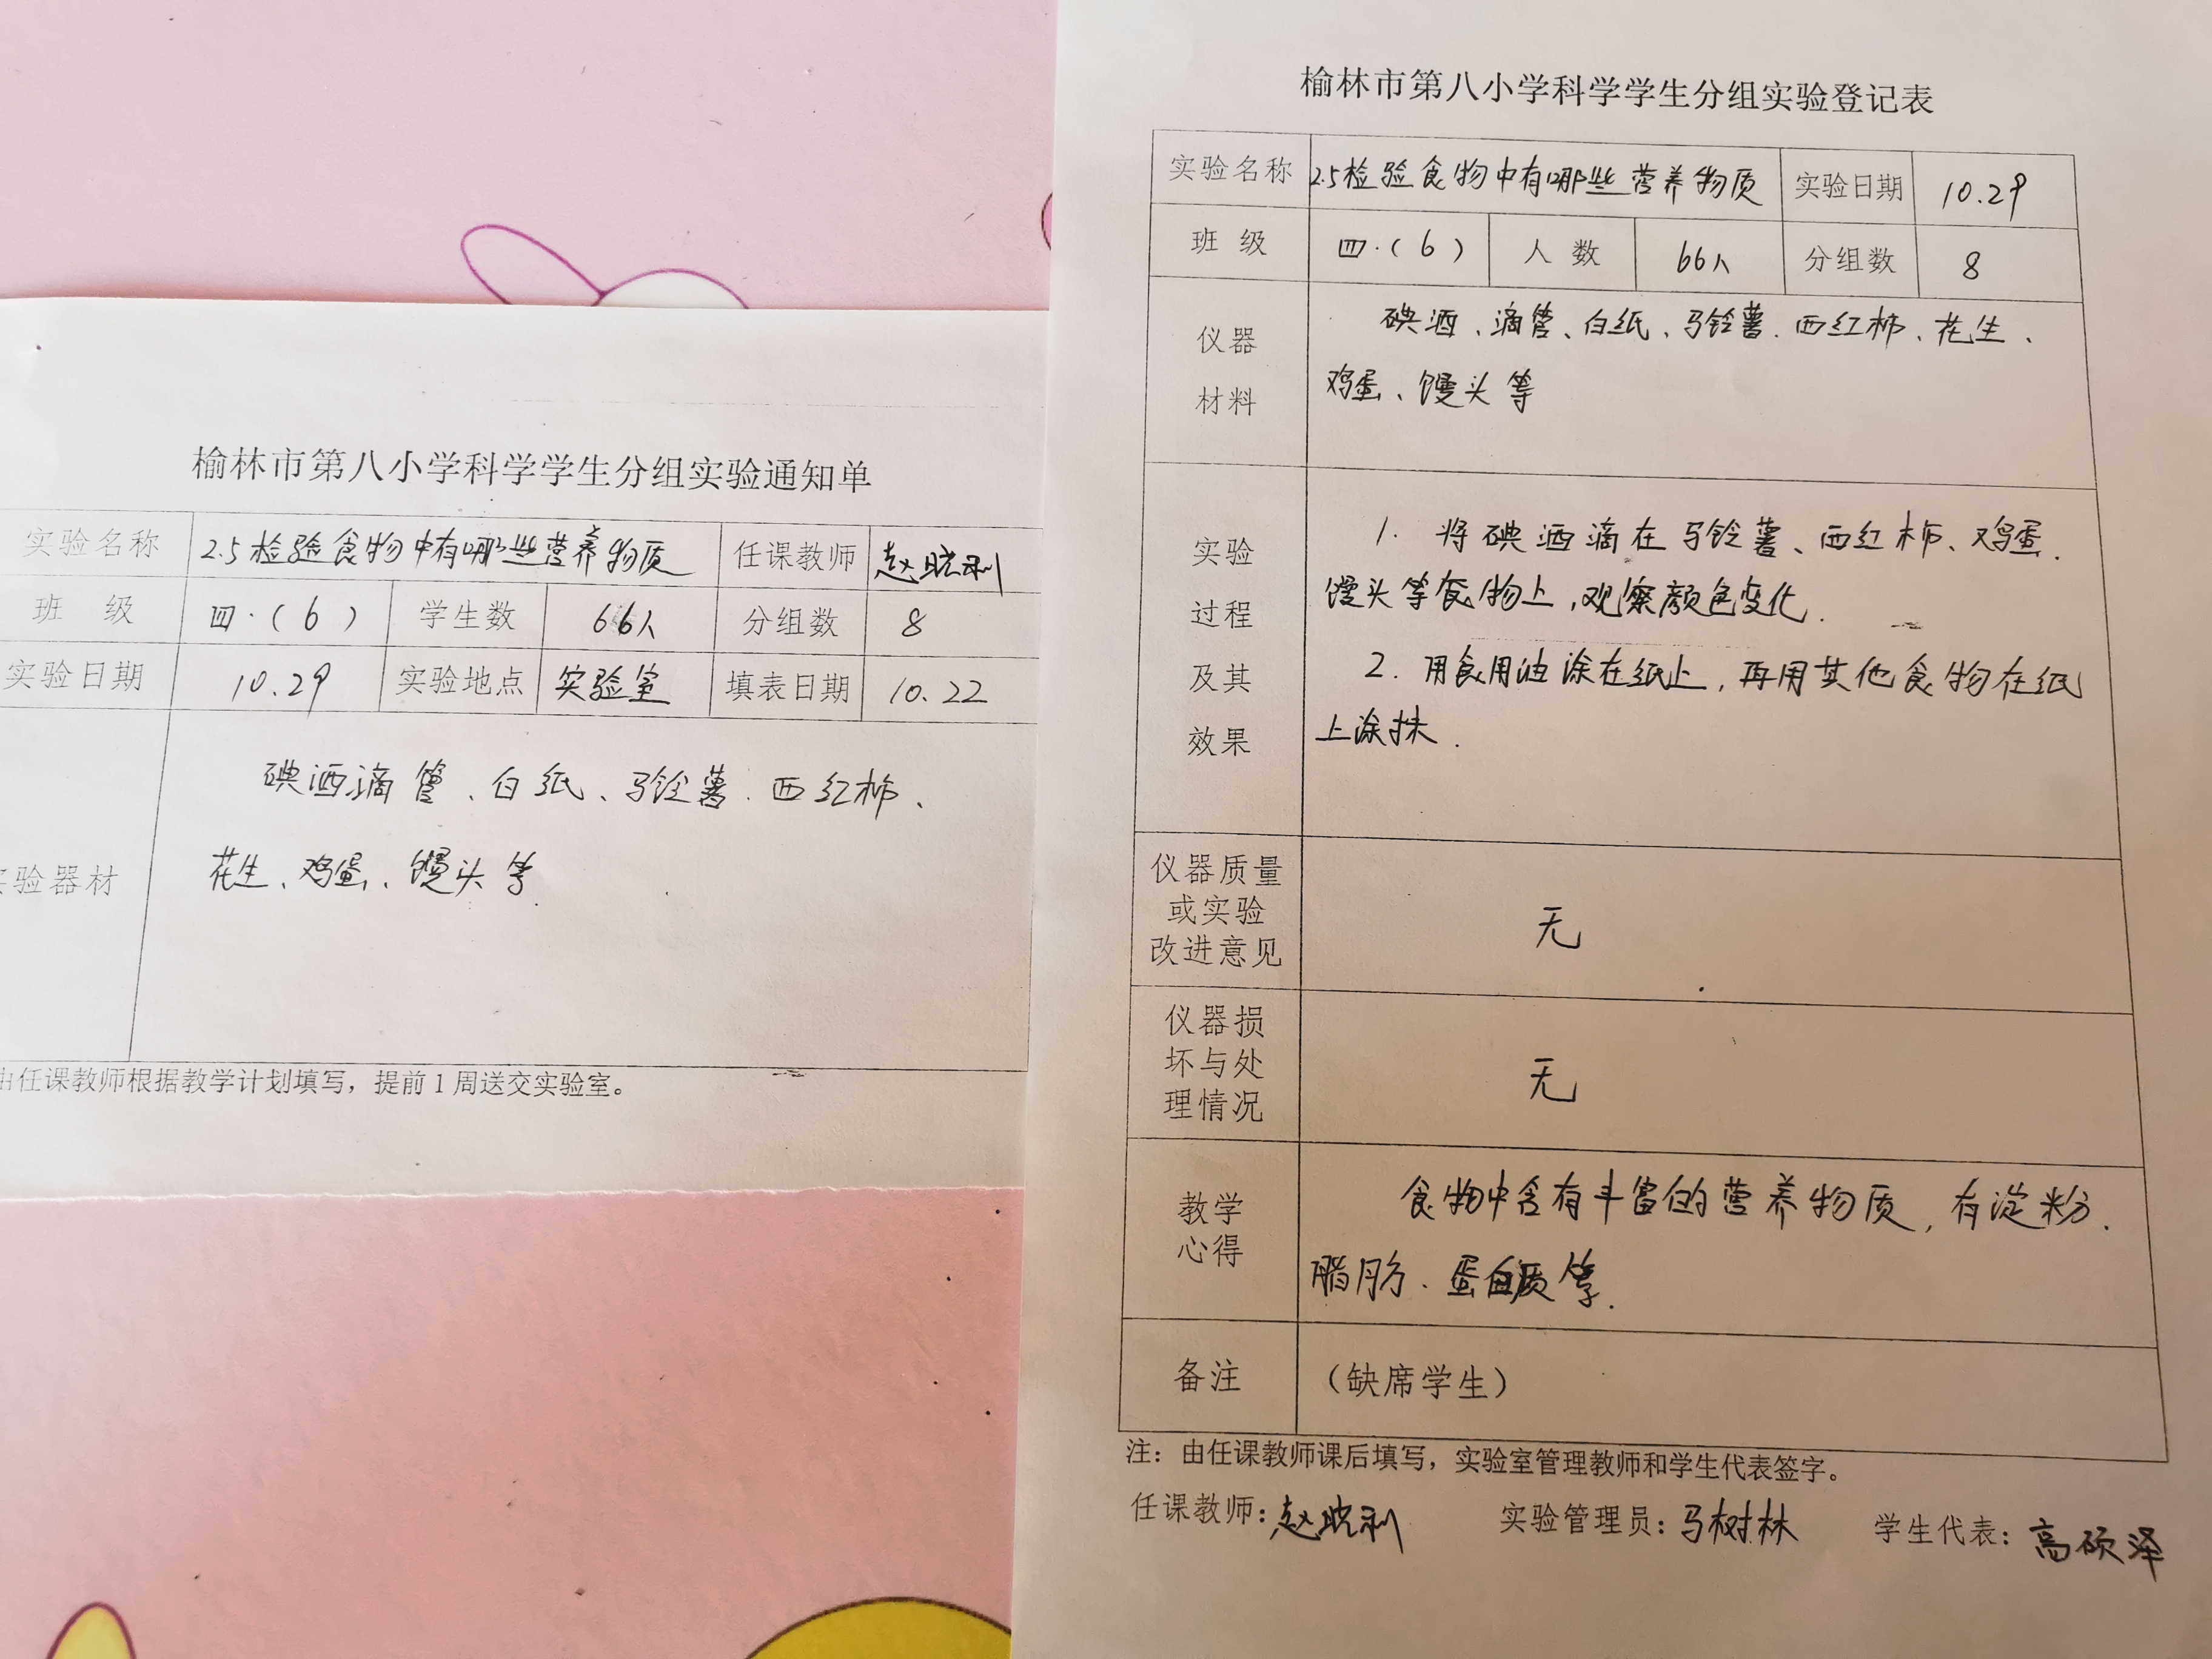 榆林市第八小学科学学生分组实验通知单
实验名称 2.5检验食物中有哪些营养物质 任课教师 赵晓利
班 级 四·(6) 学生数 66人 分组数 8
实验日期 10.29 实验地点 实验室 填表日期 10.22
碘酒滴管、白纸、马铃薯、西红柿、
验器材 花生、鸡蛋、馒头等.
由任课教师根据教学计划填写，提前1周送交实验室。
榆林市第八小学科学学生分组实验登记表
实验名称 2.5检验食物中有哪些营养物质 实验日期 10.29
班 级 四·(6) 人 数 66人 分组数 8
仪器 碘酒、滴管、白纸、马铃薯、西红柿、花生、
材料 鸡蛋、馒头等
实验 1. 将碘酒滴在马铃薯、西红柿、鸡蛋、
过程 馒头等食物上,观察颜色变化.
及其 2. 用食用油涂在纸上,再用其他食物在纸
效果 上涂抹.
仪器质量
或实验 无
改进意见
仪器损
坏与处 无
理情况
教学 食物中含有丰富的营养物质,有淀粉、
心得 脂肪、蛋白质等.
备注 （缺席学生）
注：由任课教师课后填写，实验室管理教师和学生代表签字。
任课教师：赵晓利 实验管理员：马树林 学生代表：高硕泽